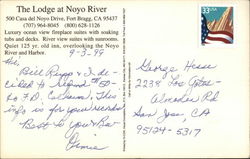 The Lodge at Noyo River
500 Casa del Noyo Drive, Fort Bragg, CA 95437
(707) 964-8045 (800) 628-1126
Luxury ocean view fireplace suites with soaking
tubs and decks. River view suites with sunrooms.
Quiet 125 yr. old inn, overlooking the Noyo
River and Harbor.
9-3-99
Hi:
Bill Rupp & I de-
cided to spend $50-
to F.D. This
info is for your records
Best to you & Bar
33 USA
George Hesse
2238 Los Gatos-
Almaden Rd
San Jose, CA
95124-5317